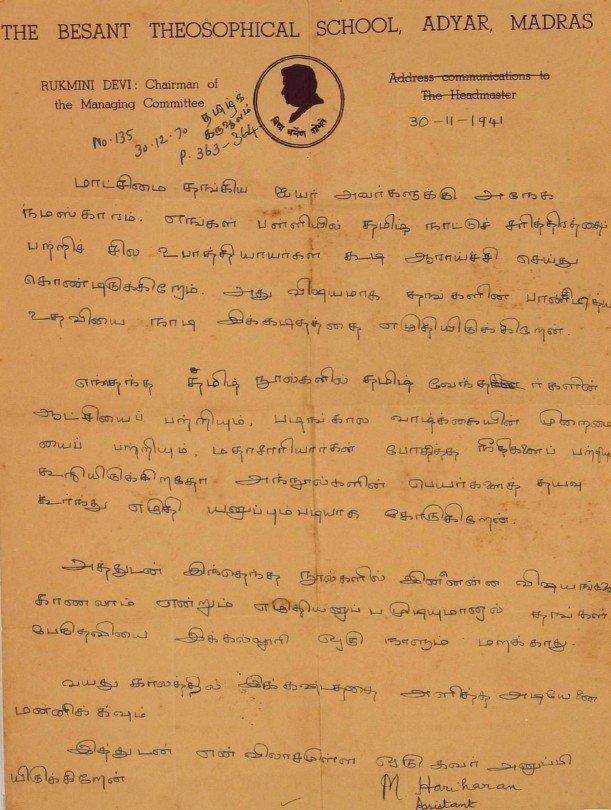 THE BESANT THEOSOPHICAL SCHOOL, ADYAR, MADRAS
RUKMINI DEVI: Chairman of
the Managing Committee
Address communications to
The Headmaster
30-11-1941
No. 135
30.12.70
தமிழ்க்
P. 363-364
மாட்சிமை தங்கிய ஐயர் அவர்களுக்கு அநேக
நமஸ்காரம். எங்கள் பள்ளியில் தமிழ் நாட்டுச் சரித்திரத்தைப்
பற்றிச் சில உபாத்தியாயர்கள் கூடி ஆராய்ச்சி செய்து
கொண்டிருக்கிறோம். அது விஷயமாக தங்களின்
உதவியை நாடி இக்கடிதத்தை எழுதியிருக்கிறேன.
எந்தந்த தமிழ் நூல்களில் தமிழ் களின்
ஆட்சியைப் பற்றியும், பழங்கால வாழ்க்கையின் முறைமை
யைப் பற்றியும், மதாசாரியார்கள் போதித்த நீதிகளைப் பற்றியு
கூறியிருக்கிறதோ அந்நூல்களின் பெயர்களைத் தயவு
கூர்ந்து எழுதி யனுப்பும்படியாக கோருகிறேன்.
அத்துடன் இந்தெந்த நூல்களில் இன்னென்ன
காணலாம் என்றும் எழுதியனுப்ப முடியுமானால் தாங்கள்
பேருதவியை இக்கல்லூரி ஒரு நாளும் மறக்காது.
வயது காலத்தில் இக் கஷ்டத்தை அளித்த அடியேனை
மன்னிக்கவும்
இத்துடன் என் விலாசமுள்ள ஒரு கவர் அனுப்பி
யிருக்கிறேன்
M Hariharan
Assistant